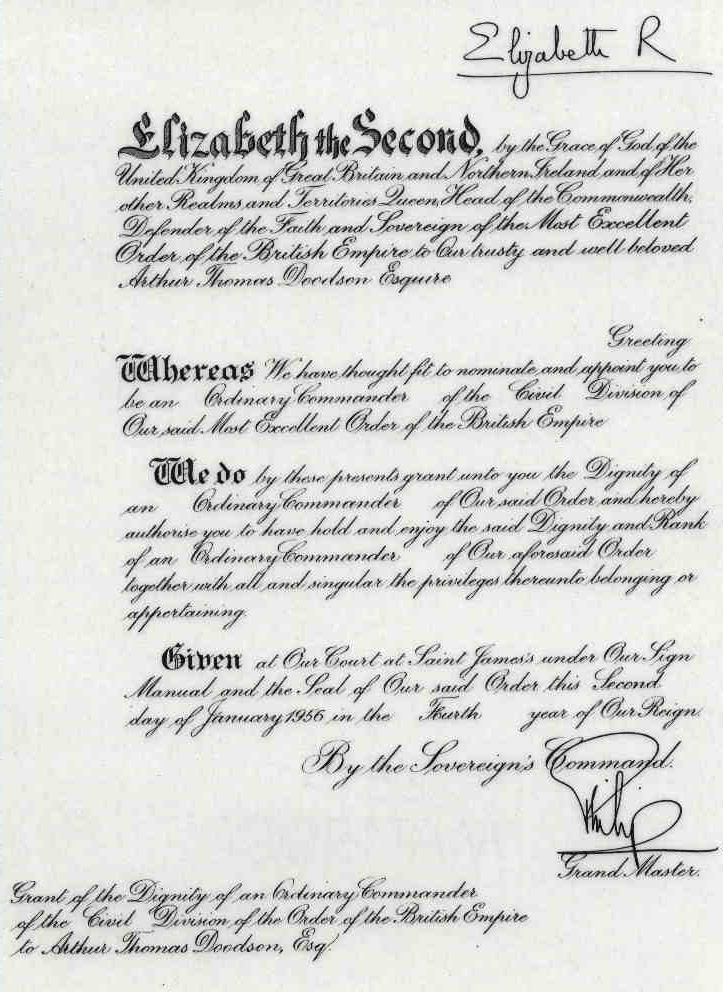 Elizabeth R
Elizabeth the Second, by the Grace of God of the
United Kingdom of Great Britain and Northern Ireland and of Her
other Realms and Territories Queen, Head of the Commonwealth,
Defender of the Faith and Sovereign of the Most Excellent
Order of the British Empire to Our trusty and well beloved
Arthur Thomas Doodson Esquire
Greeting
Whereas We have thought fit to nominate and appoint you to
be an Ordinary Commander of the Civil Division of
Our said Most Excellent Order of the British Empire
We do by these presents grant unto you the Dignity of
an Ordinary Commander of Our said Order and hereby
authorise you to have hold and enjoy the said Dignity and Rank
of an Ordinary Commander of Our aforesaid Order
together with all and singular the privileges thereunto belonging or
appertaining.
Given at Our Court at Saint James's under Our Sign
Manual and the Seal of Our said Order this Second
day of January 1956 in the Fourth year of Our Reign.
By the Sovereign's Command.
Philip
Grand Master.
Grant of the Dignity of an Ordinary Commander
of the Civil Division of the Order of the British Empire
to Arthur Thomas Doodson, Esq.